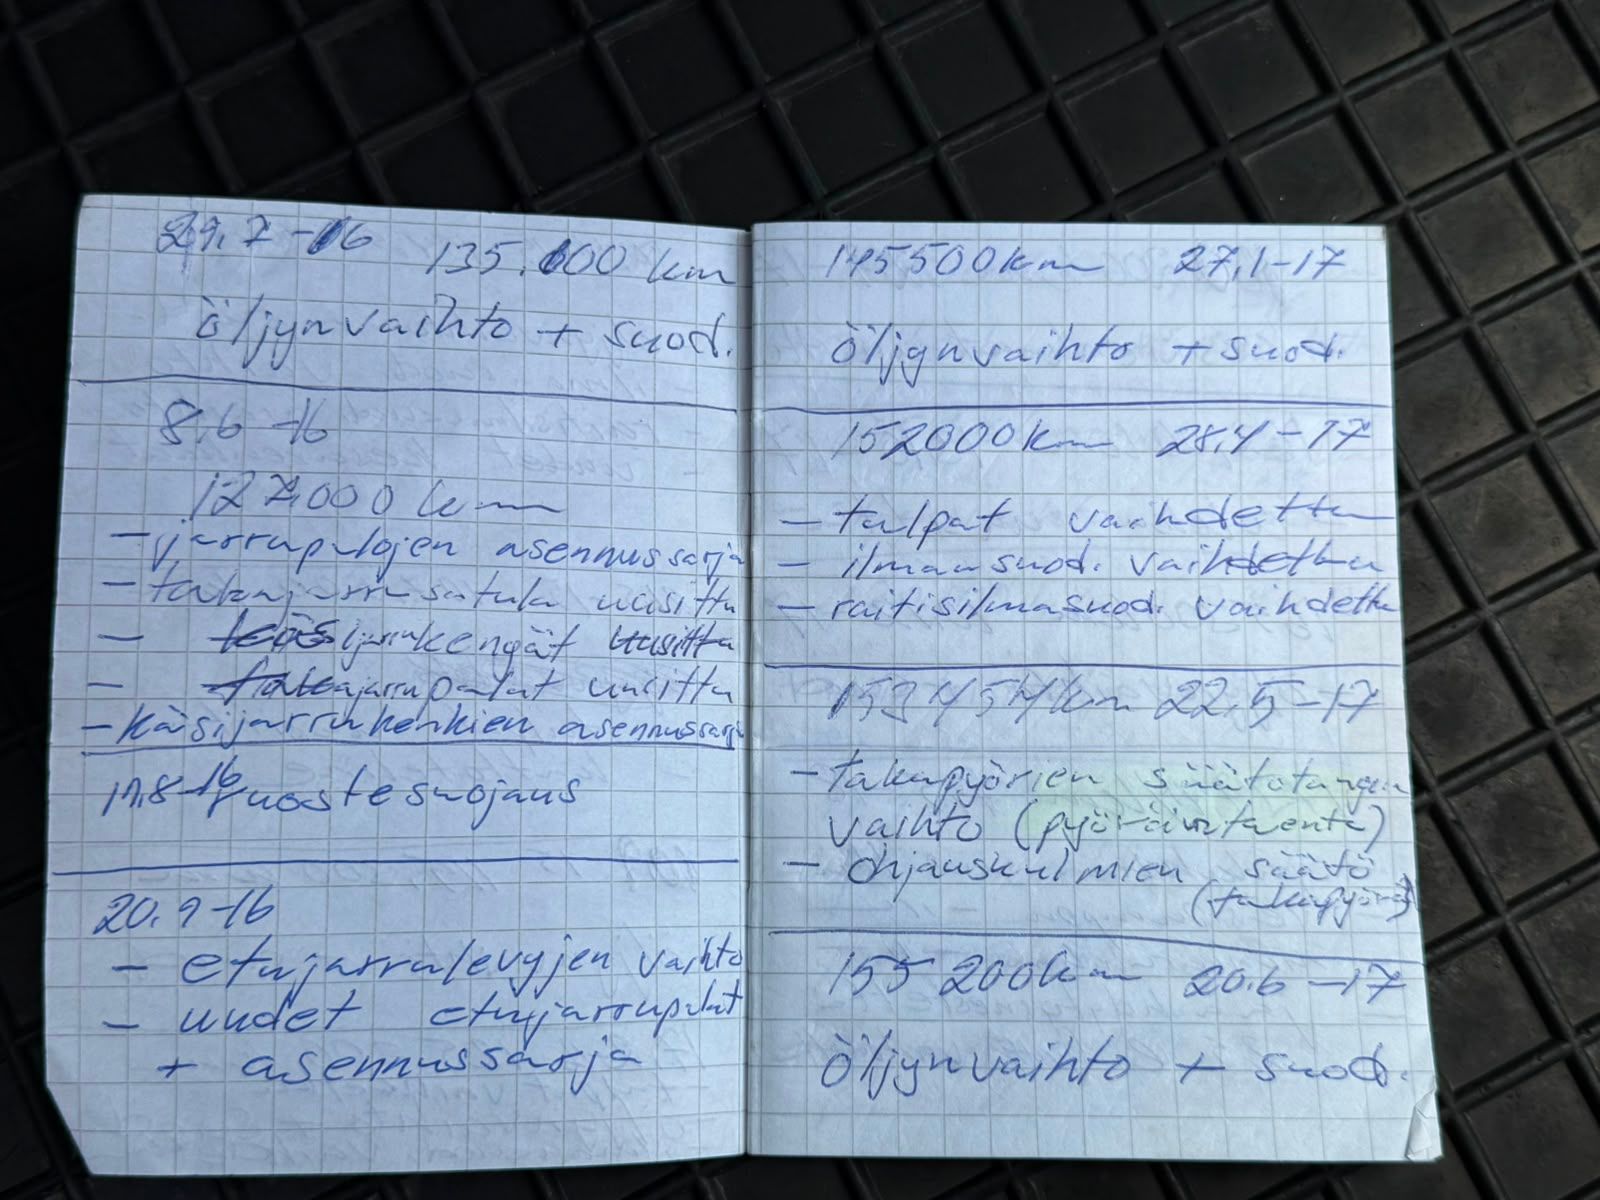 29.7-16 135.100 km
öljynvaihto + suod.
8.6-16
127.000 km
- jarrupalojen asennussarja
- takajarrusatula uusittu
- käsijarrukengät uusittu
- takajarrupalat uusittu
- käsijarrukenkien asennussarja
17.8-16 ruostesuojaus
20.9-16
- etujarrulevyjen vaihto
- uudet etujarrupalat
+ asennussarja
145500km 27.1-17
öljynvaihto + suod.
152000km 28.4-17
- tulpat vaihdettu
- ilmansuod. vaihdettu
- raitisilmasuod. vaihdettu
153454km 22.5-17
- takapyörien säätötangon
vaihto (pyöräintuenta)
- ohjauskulmien säätö
(takapyörät)
155 200km 20.6-17
öljynvaihto + suod.